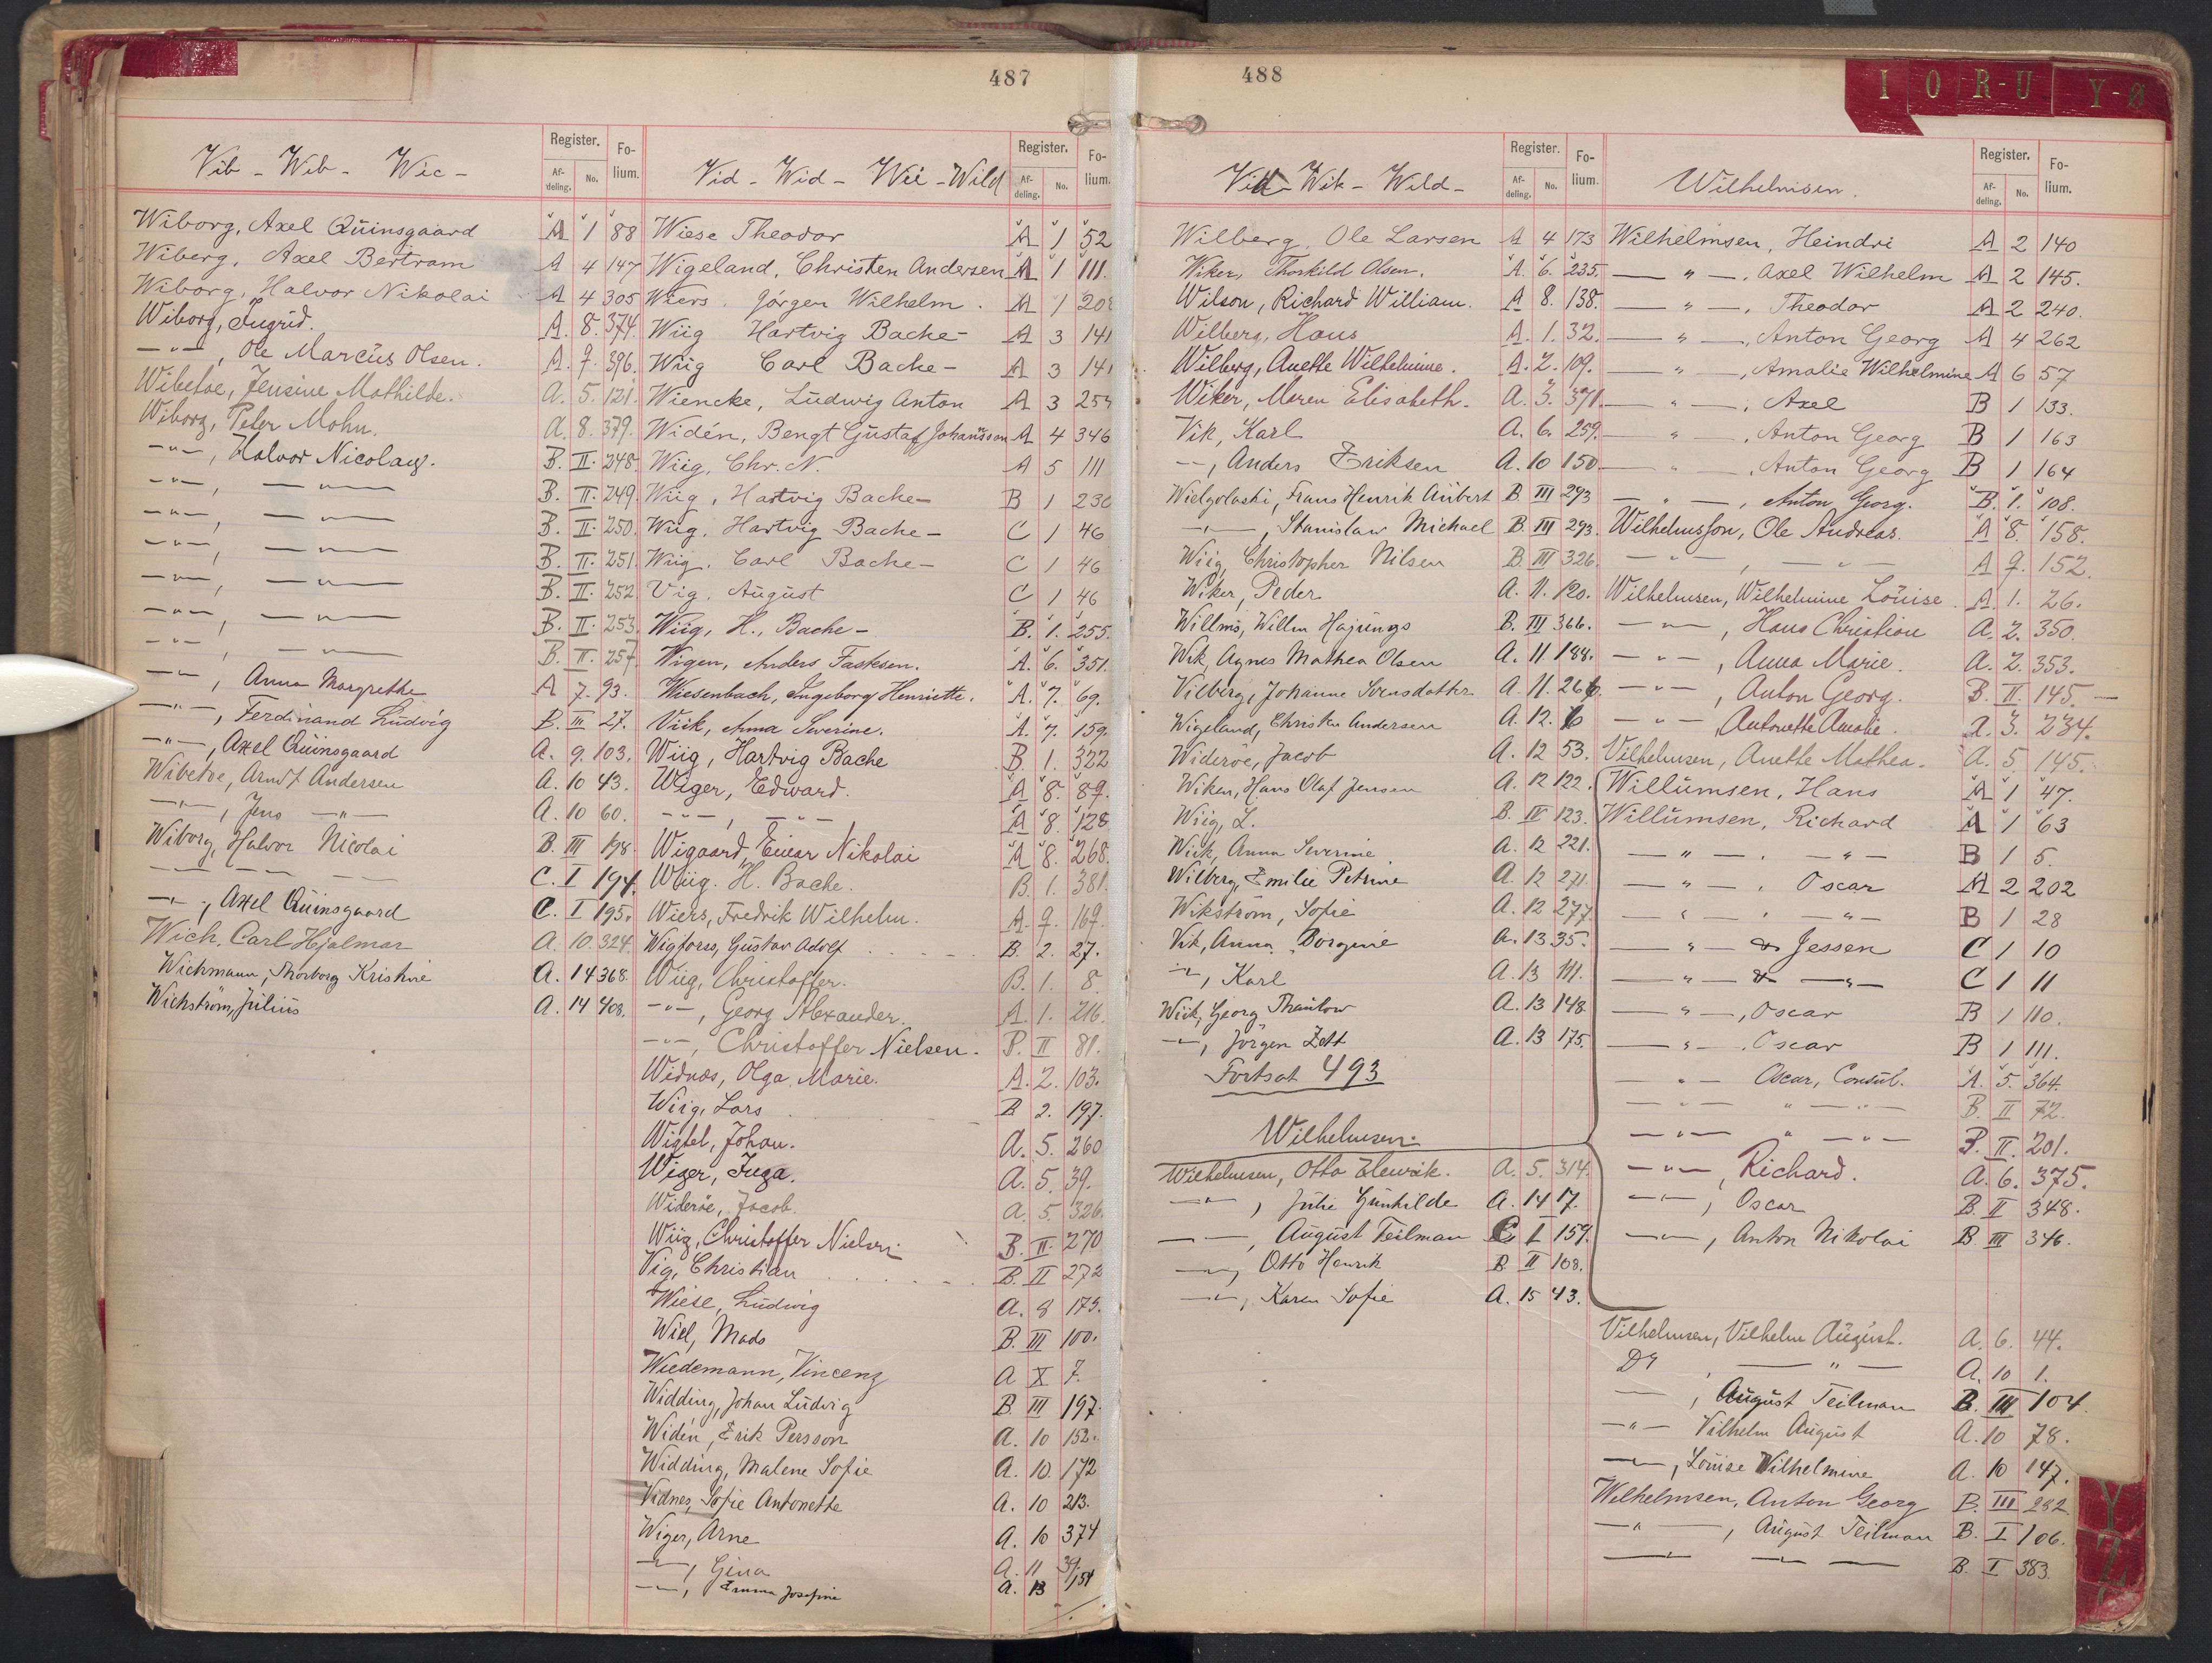 487
Vib - Wib - Wic -
Register.
Af-deling.
No.
Fo-lium.
Wiborg, Axel Quinsgaard A 1 88
Wiberg, Axel Bertram A 4 147
Wiborg, Halvor Nikolai A 4 305
Wiborg, Ingrid. A. 8. 374.
—"—, Ole Marcus Olsen. A. 9. 396.
Wibetoe, Jensine Mathilde. A. 5. 121.
Wiborg, Peter Mohn. A. 8. 379.
—"—, Halvor Nicolay. B. II. 248.
—"—, —"— B. II. 249.
—"—, —"— B. II. 250.
—"—, —"— B. II. 251.
—"—, —"— B. II. 252.
—"—, —"— B. II. 253.
—"—, —"— B. II. 257.
—"—, Anna Margrethe A 7. 93.
—"—, Ferdinand Ludvig B. III 27.
—"—, Axel Quinsgaard A. 9. 103.
Wibetoe, Arndt Andersen A. 10 43.
—"—, Jens —"— A. 10 60.
Wiborg, Halvor Nicolai B. III 198.
—"— —"— C. I 194.
—"—, Axel Quinsgaard C. I 195.
Wich, Carl Hjalmar A. 10. 324.
Wichmann, Thorborg Kristine A. 14 368.
Wichström, Julius A. 14 408.
Vid - Wid - Wii - Wild
Register.
Af-deling.
No.
Fo-lium.
Wiese Theodor A 1 52
Wigeland, Christen Andersen A 1 111.
Wiers, Jörgen Wilhelm. A 1 208
Wiig Hartvig Bache- A 3 141
Wiig Carl Bache- A 3 141
Wiencke, Ludwig Anton A 3 254
Widén, Bengt Gustaf Johansson A 4 346
Wiig, Chr. N. A 5 111
Wiig, Hartvig Bache- B 1 230
Wiig, Hartvig Bache- C 1 46
Wiig, Carl Bache- C 1 46
Vig, August C 1 46
Wiig, H., Bache- B. 1. 255.
Wigen, Anders Tasksen. A. 6. 351.
Wiesenbach, Ingeborg Henriette. A. 7. 69.
Viik, Anna Severine. A. 7. 159.
Wiig, Hartvig Bache B. 1. 322
Wiger, Edward. A 8. 89.
—"—, —"— A 8. 128
Wigaard, Einar Nikolai A 8. 268.
Wiig. H. Bache. B. 1. 381.
Wiers, Fredrik Wilhelm. A. 9. 169.
Wigforss, Gustav Adolf B. 2. 27.
Wiig, Christoffer. B. 1. 8.
—"—, Georg Alexander. A. 1. 216.
—"—, Christoffer Nielsen. B. II 81.
Widnæs, Olga Marie. A. 2. 103.
Wiig, Lars B 2. 197.
Wigtel, Johan. A. 5. 260
Wiger, Inga. A. 5. 39.
Wideröe, Jacob. A. 5. 326.
Wiig, Christoffer Nielsen B. II. 270
Vig, Christian B. II 272
Wiese, Ludwig A. 8 175.
Wiel, Mads B. III 100.
Wiedemann, Vincenz A X 7.
Widding, Johan Ludvig B. III 197.
Widén, Erik Persson A. 10 152.
Widding, Malene Sofie A. 10. 172
Vidnes, Sofie Antonette A. 10 213.
Wiger, Arne A. 10 374
—"—, Gina A. 11
—"—, Emma Josefine A. 13 154
488
Vik - Wik - Wild -
Register.
Af-deling.
No.
Fo-lium.
Wilberg, Ole Larsen A 4 173
Wiker, Thorkild Olsen. A. 6. 235.
Wilson, Richard William. A 8. 138.
Wilberg, Hans A. 1. 32.
Wilberg, Anette Wilhelmine. A. 2. 109.
Wiker, Maren Elisabeth. A. 3. 371.
Vik, Karl A. 6. 259.
—"—, Anders Eriksen A. 10 150
Wielgolaski, Frans Henrik Aubert B. III 293
—"—, Stanislaw Michael B. III 293.
Wiig, Christopher Nilsen B. III 326.
Wiker, Peder A. 11. 120.
Willms, Willm Hajungs B. III 366.
Wik, Agnes Mathea Olsen A. 11 188.
Vilberg, Johanne Svensdatter A. 11. 266.
Wigeland, Christen Andersen A. 12. 6
Wideröe, Jacob A. 12 53.
Wiken, Hans Olaf Jensen A. 12 122.
Wiig, L. B. IV 123.
Wiik, Anna Severine A. 12 221.
Wilberg, Emilie Petrine A. 12 271
Wikström, Sofie A. 12 277.
Vik, Anna Borgine A. 13 35.
—"—, Karl A. 13 111.
Wiik, Georg Thaulow A. 13 148
—"—, Jörgen Zett A. 13 175.
Fortsat 493
Wilhelmsen.
Wilhelmsen, Otto Henrik. A. 5. 314.
—"—, Julie Gunhilde A. 14 17.
—"—, August Teilman C. I 159.
—"—, Otto Henrik B. II 108.
—"—, Karen Sofie A. 15 43.
Wilhelmsen.
Register.
Af-deling.
No.
Fo-lium.
Wilhelmsen, Heindri A 2 140
—"—, Axel Wilhelm A 2 145.
—"—, Theodor A 2 240.
—"—, Anton Georg A 4 262
—"—, Amalie Wilhelmine A 6 57
—"—, Axel B 1 133.
—"—, Anton Georg B 1 163
—"—, Anton Georg B 1 164
—"—, Anton Georg. B. 1. 108.
Wilhelmsson, Ole Andreas. A 8. 158.
—"—, —"— A 9. 152.
Wilhelmsen, Wilhelmine Louise. A. 1. 26.
—"—, Hans Christian A. 2. 350.
—"—, Anna Marie. A. 2. 353.
—"—, Anton Georg. B. II. 145.—
—"—, Antonette Amalie. A. 3. 234.
Vilhelmsen, Anette Mathea. A. 5 145.
Willumsen, Hans A 1 47.
Willumsen, Richard A 1 63
—"—. —"— B 1 5.
—"—. Oscar A 2 202
—"—. —"— B 1 28
—"— & Jessen C 1 10
—"— & —"— C 1 11
—"—, Oscar B 1 110.
—"—. Oscar B 1 111.
—"— Oscar, Consul. A. 5. 364.
—"— " —"— B. II 72.
—"— " —"— B. II. 201.
—"—, Richard. A. 6. 375.
—"—, Oscar B. II 348.
—"—, Anton Nikolai B. III 346.
Vilhelmsen, Vilhelm August. A. 6. 44.
Do, —"— A. 10 1.
—"—, August Teilman B. III 104
—"— Vilhelm August A. 10 78.
—"—, Louise Wilhelmine A. 10 147.
Wilhelmsen, Anton Georg B. III 282
—"—, August Teilman B. I 106.
—"— —"— B. I 383.
I
O
R-U
Y-Ø
Y
Z